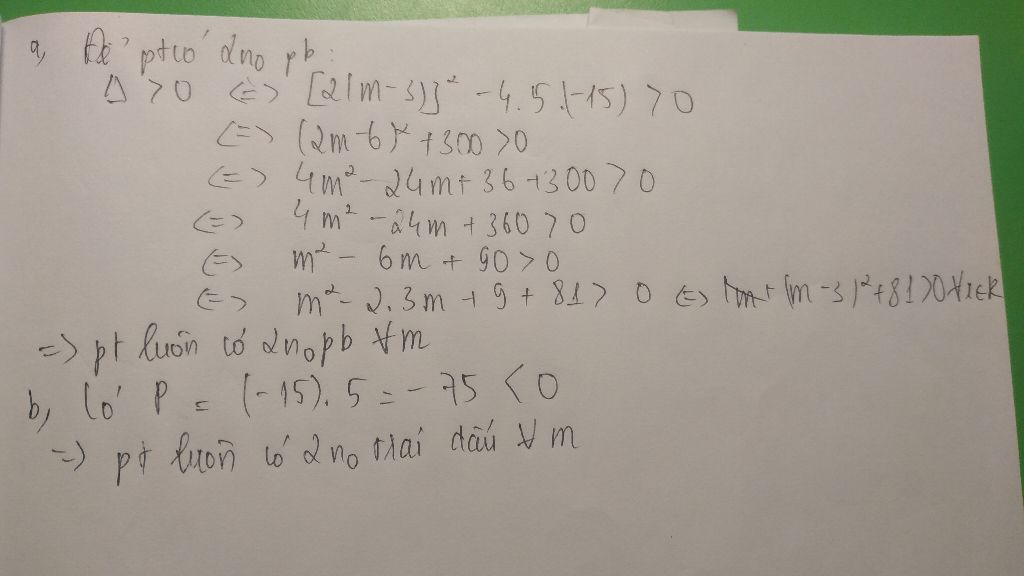 a, Để pt có 2 no pb :
Δ > 0 <=> [2(m-3)]² - 4.5.(-15) > 0
<=> (2m-6)² + 300 > 0
<=> 4m² - 24m + 36 + 300 > 0
<=> 4m² - 24m + 360 > 0
<=> m² - 6m + 90 > 0
<=> m² - 2.3m + 9 + 81 > 0 <=> (m-3)² + 81 > 0 ∀x∈R
=> pt luôn có 2 no pb ∀m
b, Có P = (-15).5 = -75 < 0
=> pt luôn có 2 no trái dấu ∀m